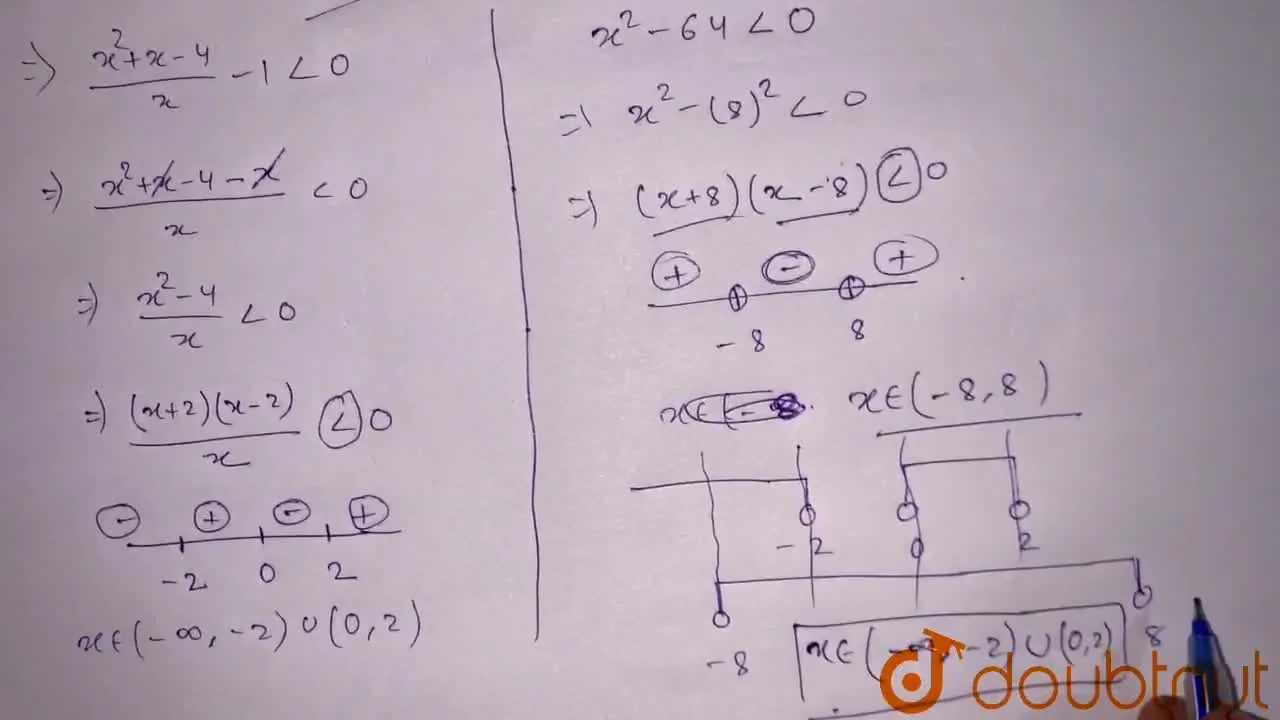 => (x²+x-4)/x - 1 < 0
=> (x²+x-4-x)/x < 0
=> (x²-4)/x < 0
=> (x+2)(x-2)/x < 0
- + - +
-2 0 2
x∈(-∞, -2) ∪ (0, 2)
x² - 64 < 0
=> x² - (8)² < 0
=> (x+8)(x-8) < 0
+ - +
-8 8
x∈(-8, 8)
-2 0 2
-8 8
x∈( , -2) ∪ (0,2)
doubtnut